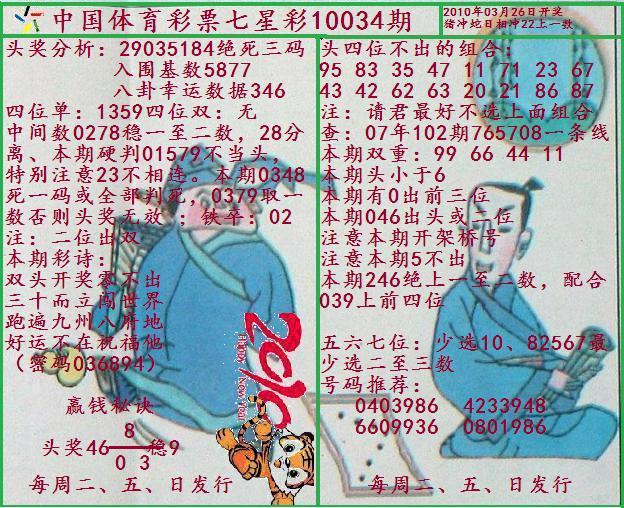 中国体育彩票七星彩10034期
2010年03月26日开奖
猪冲蛇日相冲22上一数
头奖分析:29035184绝死三码
入围基数5877
八卦幸运数据346
四位单:1359四位双:无
中间数0278稳一至二数,28分
离、本期硬判01579不当头,
特别注意23不相连。本期0348
死一码或全部判死,0379取一
数否则头奖无效;铁卒:02
注:二位出双
本期彩诗:
双头开奖零不出
三十而立闯世界
跑遍九州八府地
好运不在祝福他
(密码036894)
赢钱秘诀
8
头奖46——稳9
0 3
每周二、五、日发行
2010
Happy New Year
头四位不出的组合:
95 83 35 47 11 71 23 67
43 42 62 63 20 21 86 87
注:请君最好不选上面组合
查:07年102期765708一条线
本期双重:99 66 44 11
本期头小于6
本期有0出前三位
本期046出头或二位
注意本期开架桥号
注意本期5不出
本期246绝上一至二数,配合
039上前四位
五六七位:少选10、82567最
少选二至三数
号码推荐:
0403986 4233948
6609936 0801986
每周二、五、日发行